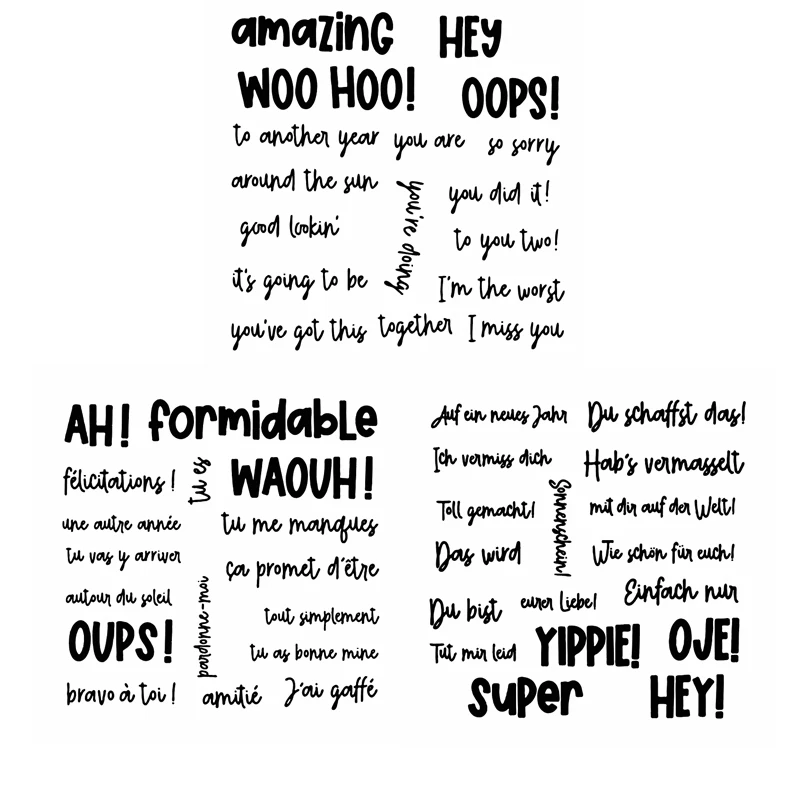 amazing HEY
WOO HOO! OOPS!
to another year you are so sorry
around the sun
you're doing
you did it!
good lookin'
to you two!
it's going to be
I'm the worst
you've got this together I miss you
AH! formidable
félicitations !
tu es
WAOUH!
une autre année
tu me manques
tu vas y arriver
ça promet d'être
autour du soleil
pardonne-moi
tout simplement
OUPS!
tu as bonne mine
bravo à toi !
amitié
J'ai gaffé
Auf ein neues Jahr
Du schaffst das!
Ich vermiss dich
Hab's vermasselt
Sonnenschein!
Toll gemacht!
mit dir auf der Welt!
Das wird
Wie schön für euch!
Du bist
eurer Liebe!
Einfach nur
Tut mir leid
YIPPIE!
OJE!
super
HEY!